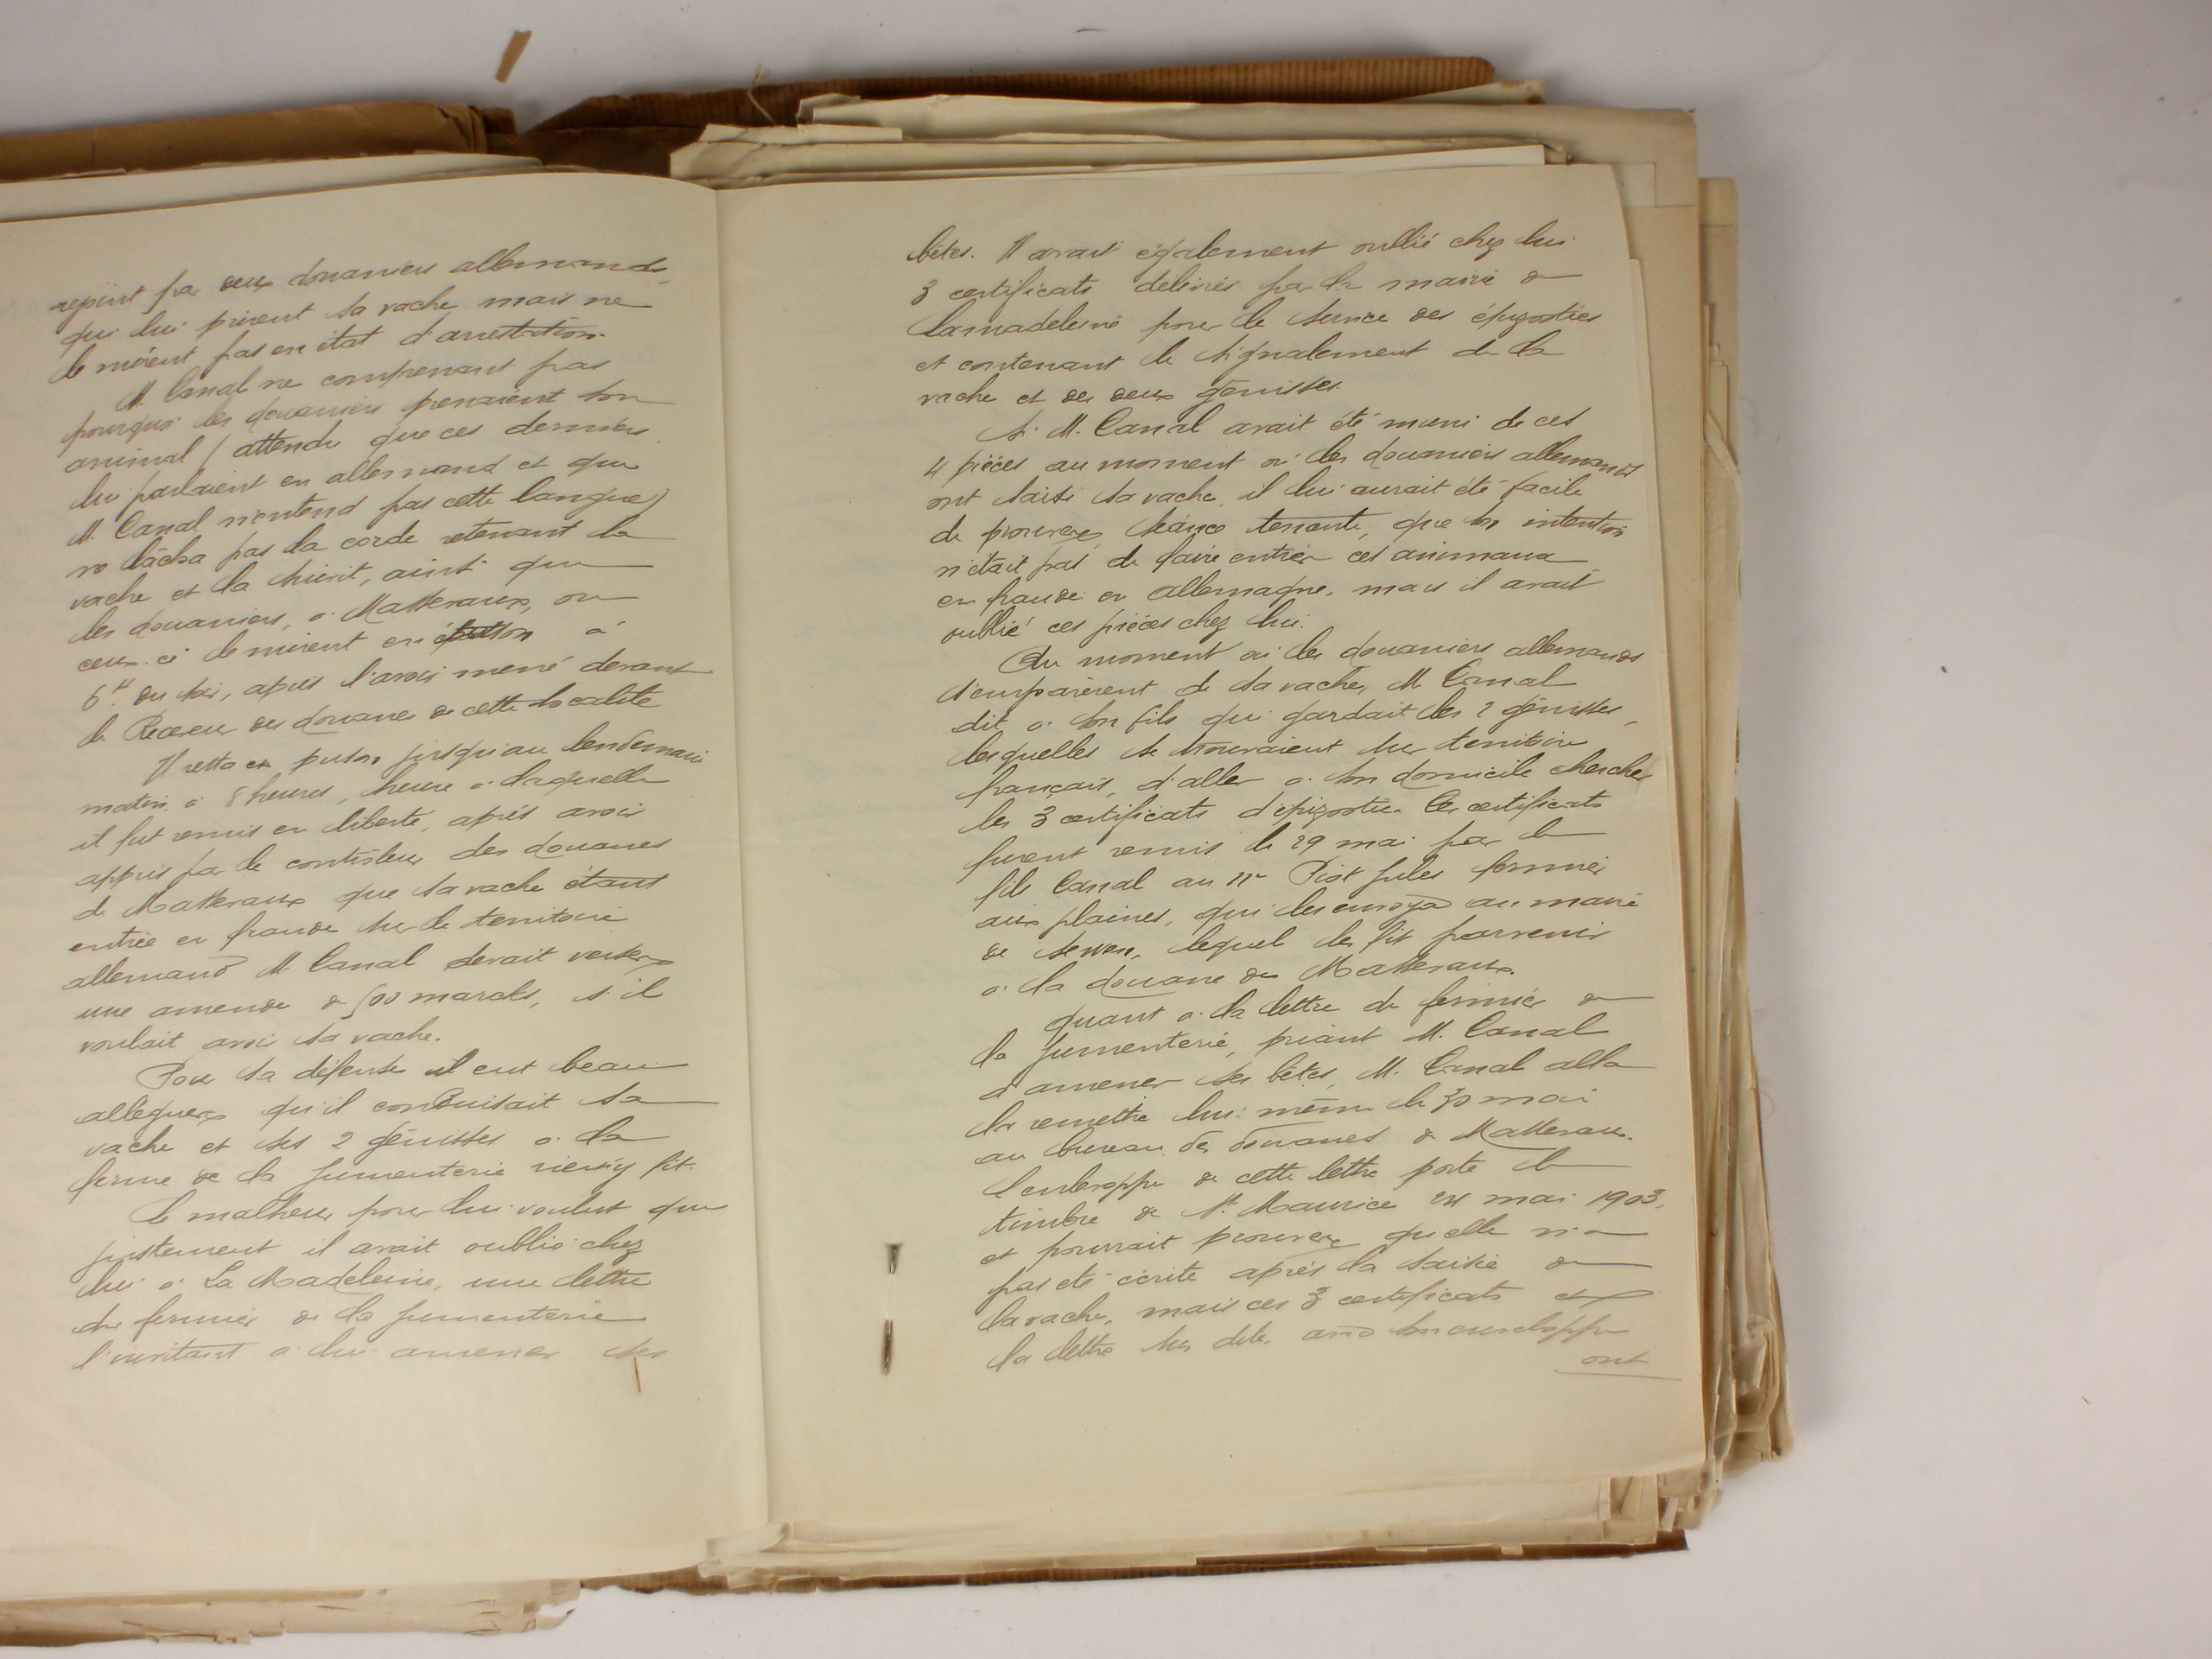 rejoint par deux douaniers allemands
qui lui prirent sa vache mais ne
le mirent pas en état d'arrestation.
M. Canal ne comprenant pas
pourquoi les douaniers prenaient son
animal (attendu que ces derniers
lui parlaient en allemand et que
M. Canal n'entend pas cette langue)
ne lâcha pas la corde retenant la
vache et la suivit, ainsi que
les douaniers, à Masevaux, où
ceux-ci le mirent en prison à
6h du soir, après l'avoir mené devant
le Receveur des douanes de cette localité
Il resta en prison jusqu'au lendemain
matin à 8 heures, heure à laquelle
il fut remis en liberté, après avoir
appris par le contrôleur des douanes
de Masevaux que sa vache étant
entrée en fraude sur le territoire
allemand M. Canal devait verser
une amende de 500 marcks, s'il
voulait avoir sa vache.
Pour sa défense il eut beau
alléguer qu'il conduisait sa
vache et ses 2 génisses à la
ferme de la Jumenterie rien n'y fit.
Le malheur pour lui voulut que
justement il avait oublié chez
lui à La Madeleine, une lettre
du fermier de la Jumenterie
l'invitant à lui amener ses
bêtes. Il avait également oublié chez lui
3 certificats délivrés par la mairie de
Lamadeleine pour le service des épizooties
et contenant le signalement de la
vache et des deux génisses.
Si M. Canal avait été muni de ces
4 pièces au moment où les douaniers allemands
ont saisi sa vache, il lui aurait été facile
de prouver, séance tenante, que son intention
n'était pas de faire entrer ces animaux
en fraude en Allemagne, mais il avait
oublié ces pièces chez lui.
Au moment où les douaniers allemands
s'emparèrent de sa vache, M. Canal
dit à son fils qui gardait les 2 génisses,
lesquelles se trouvaient sur territoire
français, d'aller à son domicile chercher
les 3 certificats d'épizootie. Ces certificats
furent remis le 29 mai par le
fils Canal au Mr Piot Jules fermier
aux plaines, qui les envoya au maire
de Sewen, lequel les fit parvenir
à la douane de Masevaux.
Quant à la lettre du fermier de
la Jumenterie, priant M. Canal
d'amener ses bêtes, M. Canal alla
la remettre lui-même le 30 mai
au bureau des douanes de Masevaux.
L'enveloppe de cette lettre porte le
timbre de St. Maurice 24 mai 1903,
et pourrait prouver qu'elle n'a
pas été écrite après la saisie de
la vache, mais ces 3 certificats et
la lettre sus dite, avec son enveloppe
ont